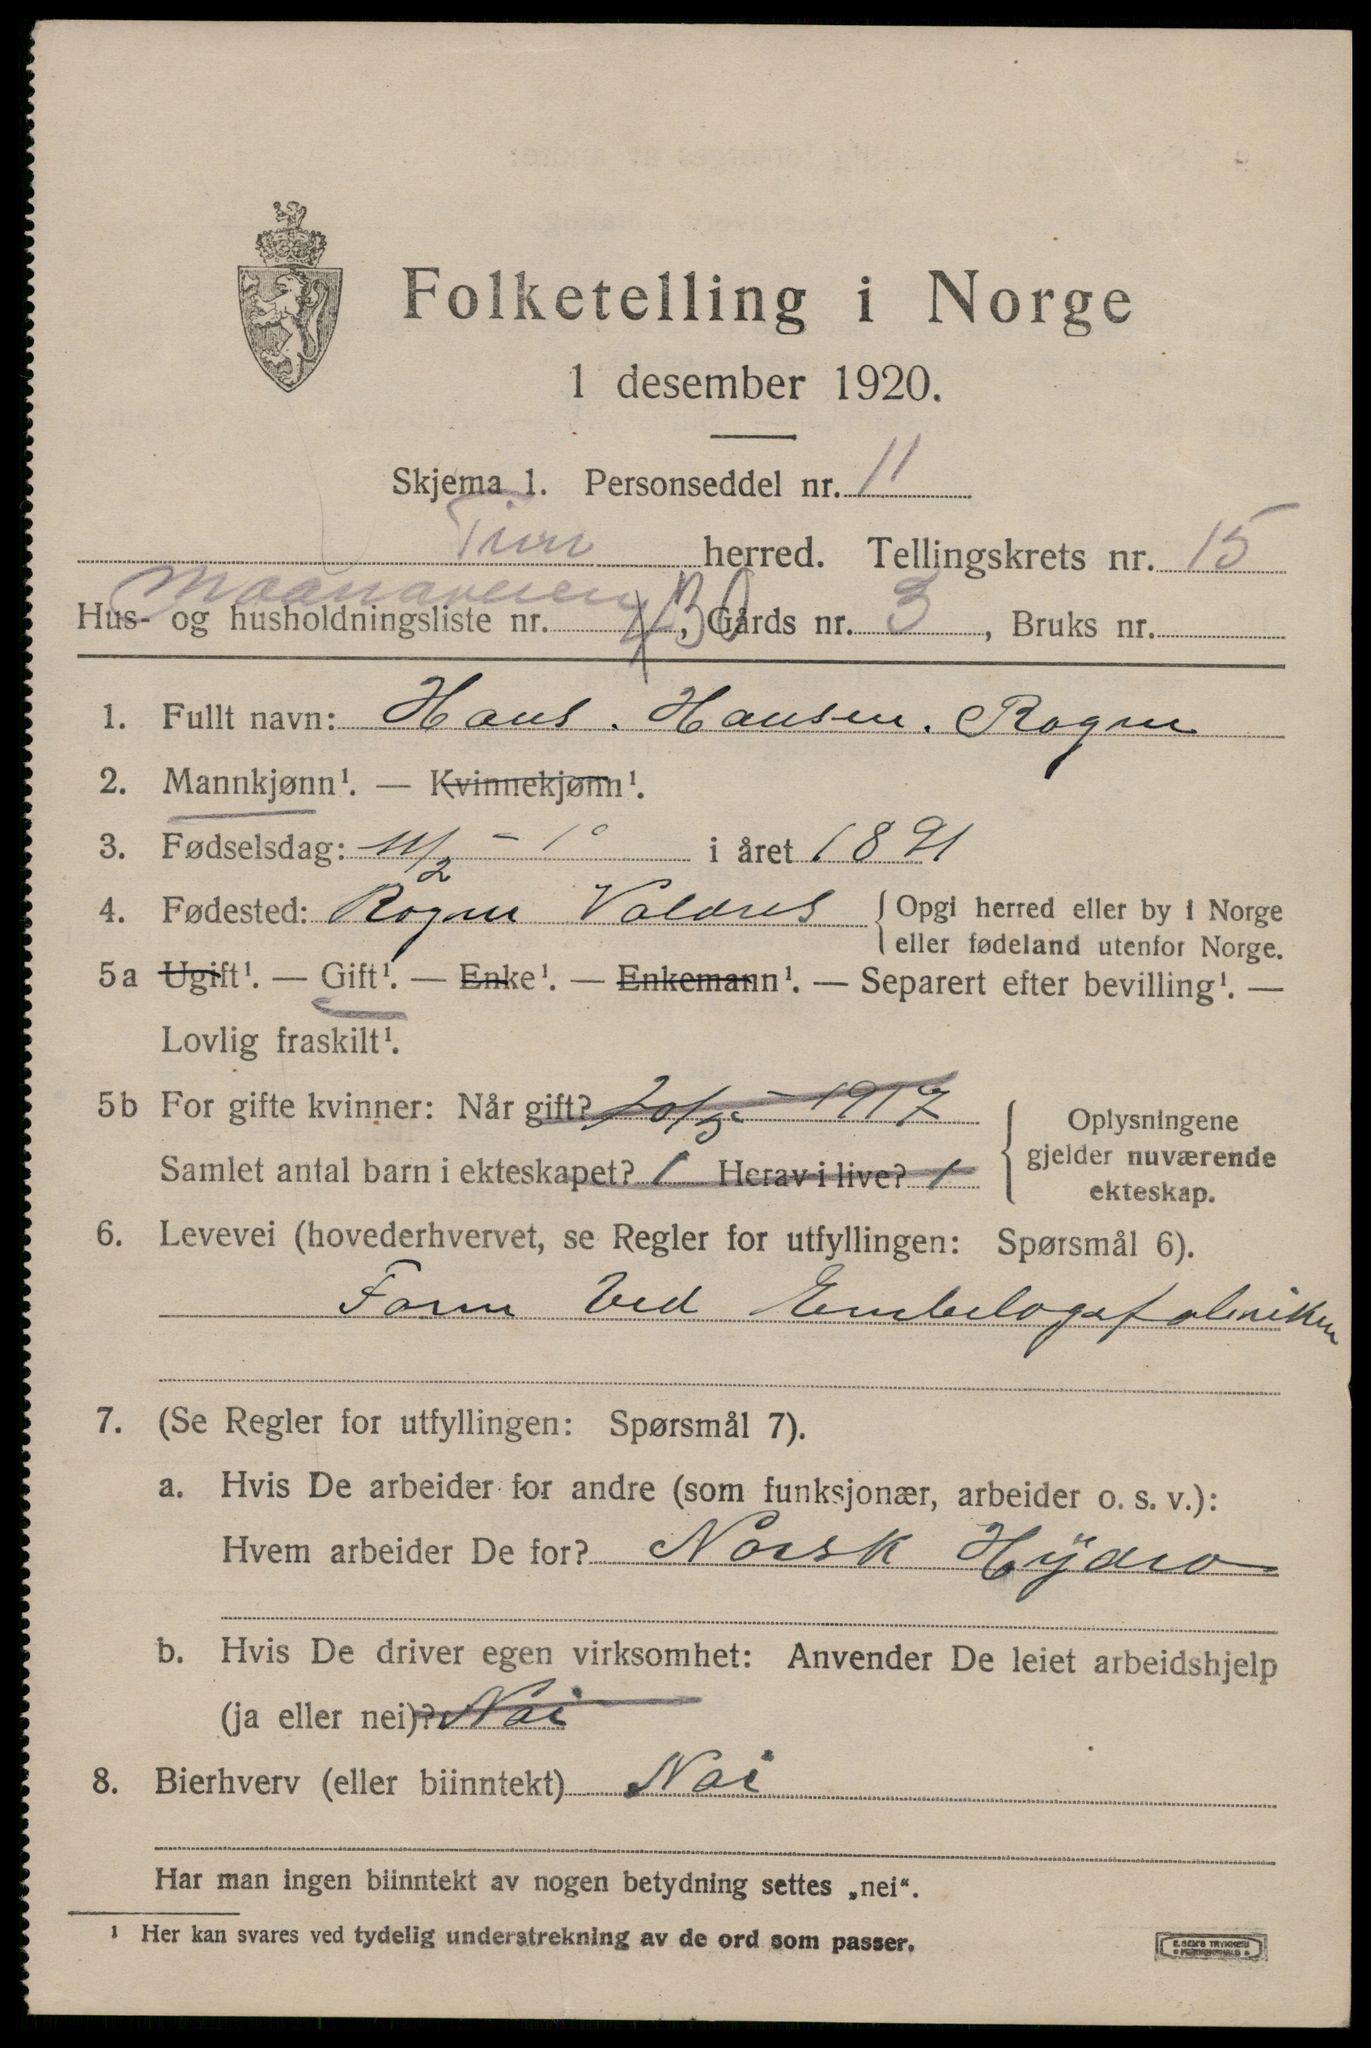 Folketelling i Norge
1 desember 1920.
Skjema 1. Personseddel nr. 11
Tinn herred. Tellingskrets nr. 15
Maanaveien
Hus- og husholdningsliste nr. 30, Gårds nr. 3, Bruks nr.
1. Fullt navn: Hans. Hansen. Rogne
2. Mannkjønn¹. — Kvinnekjønn¹.
3. Fødselsdag: 11/2 i året 1891
4. Fødested: Rogne Valdres { Opgi herred eller by i Norge
eller fødeland utenfor Norge.
5a Ugift¹. — Gift¹. — Enke¹. — Enkemann¹. — Separert efter bevilling¹. —
Lovlig fraskilt¹.
5b For gifte kvinner: Når gift? 20/5 - 1917
Samlet antal barn i ekteskapet? 1 Herav i live? 1
{ Oplysningene
gjelder nuværende
ekteskap.
6. Levevei (hovederhvervet, se Regler for utfyllingen: Spørsmål 6).
Form ved Embelagsfabrikken
7. (Se Regler for utfyllingen: Spørsmål 7).
a. Hvis De arbeider for andre (som funksjonær, arbeider o. s. v.):
Hvem arbeider De for? Norsk Hydro
b. Hvis De driver egen virksomhet: Anvender De leiet arbeidshjelp
(ja eller nei)? Nei
8. Bierhverv (eller biinntekt) Nei
Har man ingen biinntekt av nogen betydning settes „nei“.
¹ Her kan svares ved tydelig understrekning av de ord som passer.
E. SEM'S TRYKKERI
FREDRIKSHALD